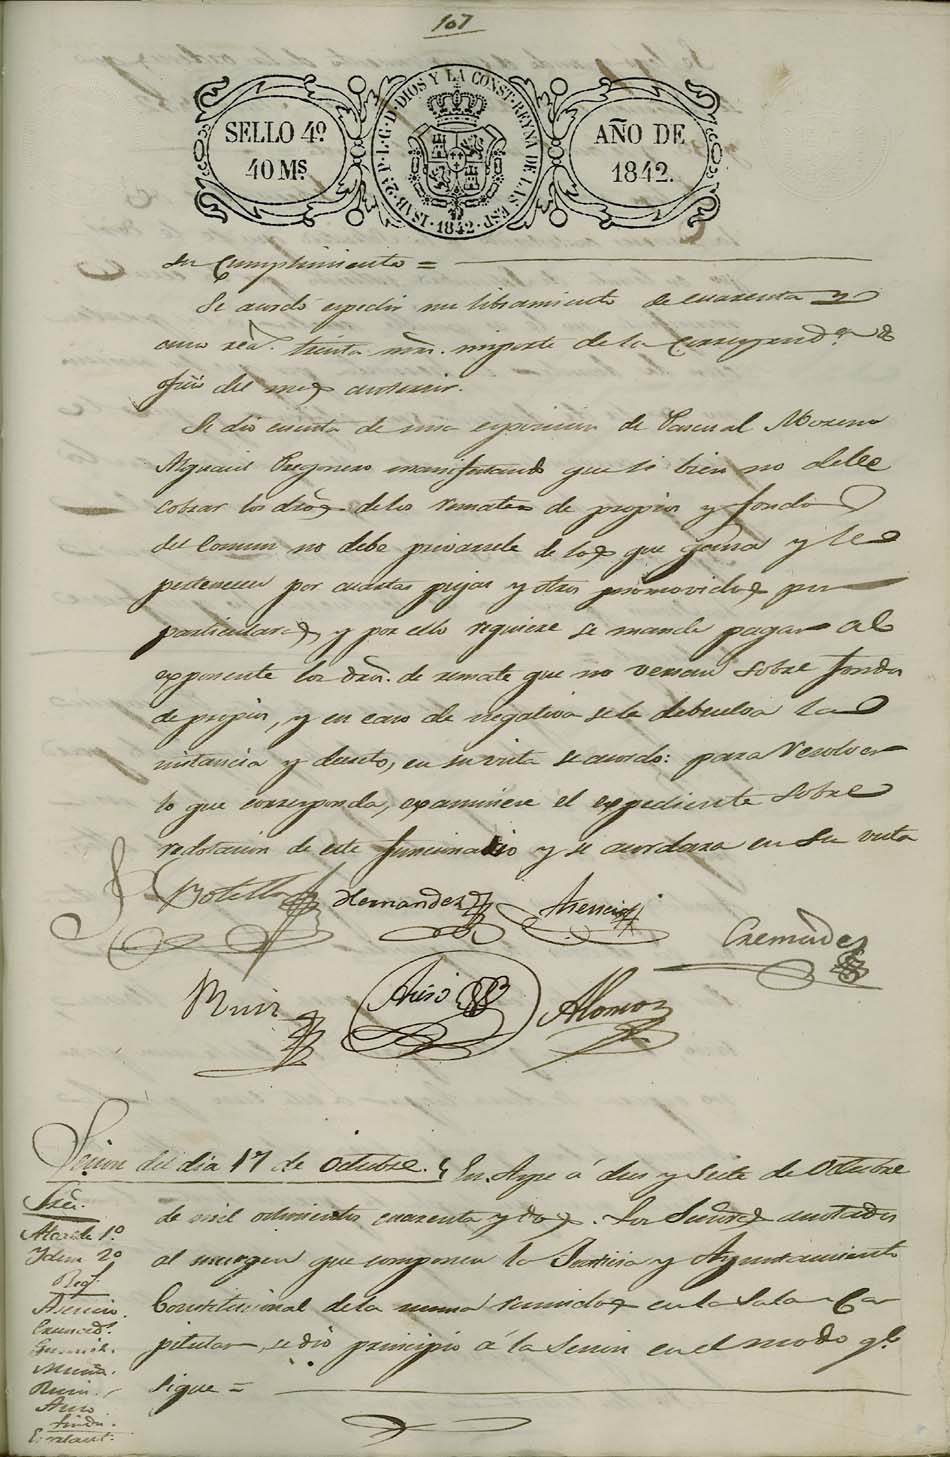 107
SELLO 4º
40 Ms.
ISAB. 2ª P. L. G. D. DIOS Y LA CONST. REYNA DE LAS ESP.
1842
AÑO DE
1842.
su Cumplimiento =
Se acordó espedir un libramiento de cuarenta y
ocho rea.s treinta mrs. importe de la Correspond.a de
oficio del mes anterior.
Se dio cuenta de una esposicion de Pascual Moreno
Alguacil Pregonero manifestando que si bien no debe
cobrar los dros. de los remates de propios y fondos
del Comun no debe privarsele de los que gana y le
pertenecen por cuartas pujas y otros promovidos por
particulares, y por ello requiere se mande pagar al
exponente los dros. de remate que no versan sobre fondos
de propios, y en caso de negativa se le debuelva la
instancia y decreto, en su vista se acordó: para resolver
lo que corresponda, examinese el expediente sobre
redotacion de este funcionario y se acordara en su vista
Botella Hernandez Asencio
Cremades
Ruiz Aviso Alonso
Sesion del dia 17 de Octubre. En Aspe á diez y siete de Octubre
de mil ochocientos cuarenta y dos. Los Señores anotados
al margen que componen la Justicia y Ayuntamiento
Constitucional de la misma reunidos en la Sala Ca-
pitular, se dió principio á la Sesion en el modo q.e
sigue =
Sres.
Alcalde 1º
Idem 2º
Reg.s
Asencio.
Cremad.s
Ruiz.